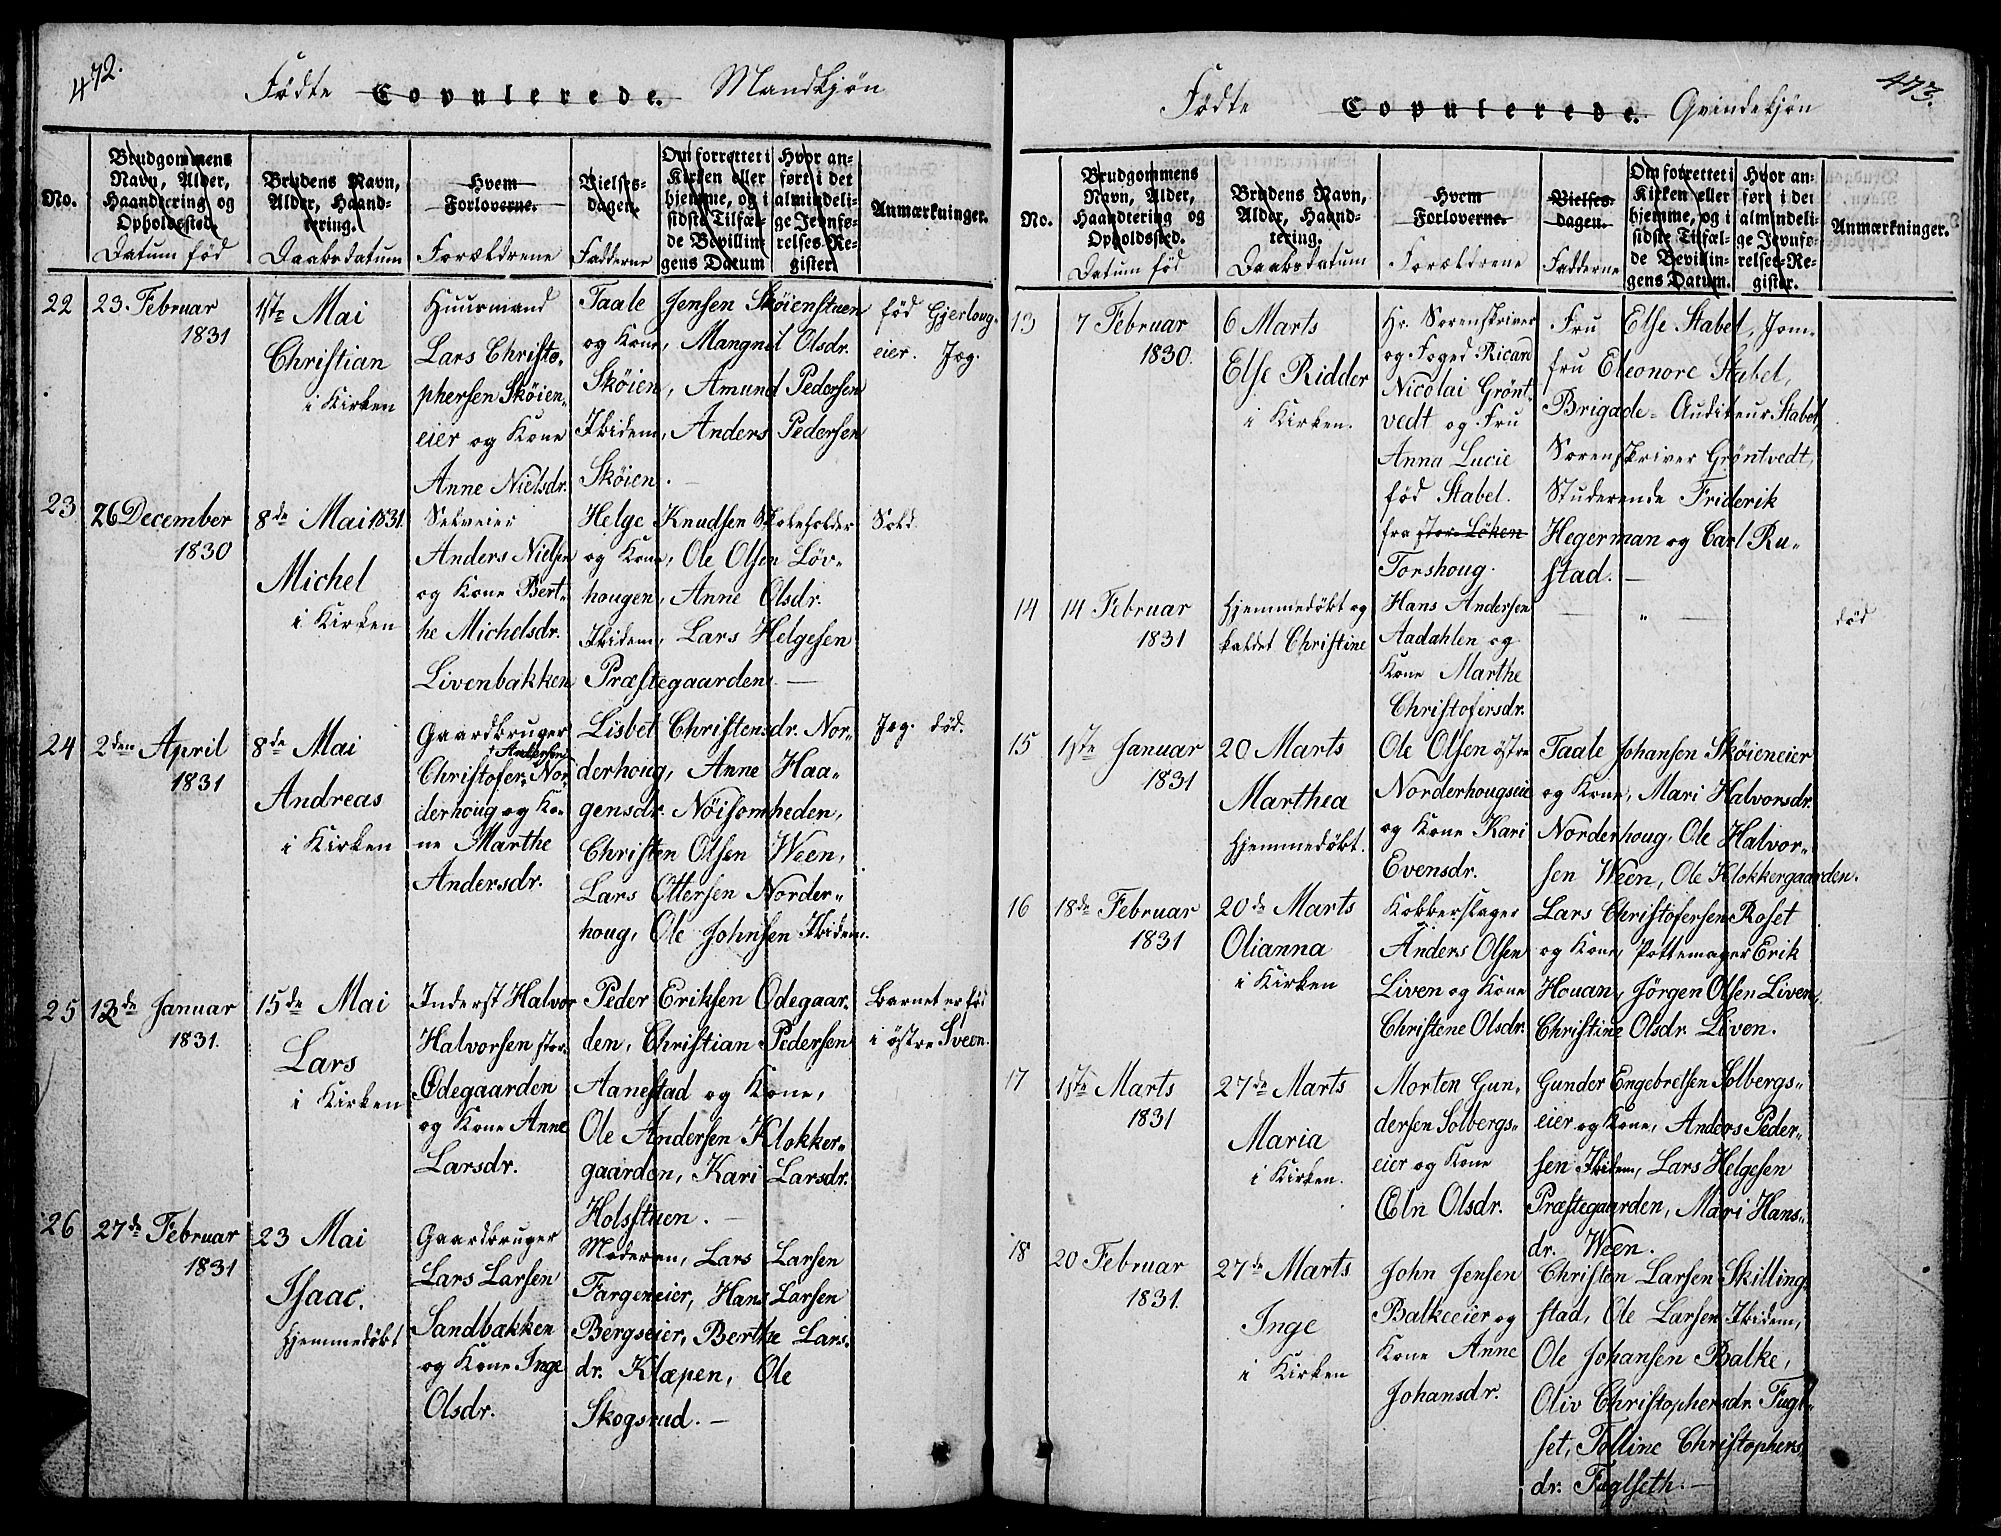 472.
Födte Copulerede. Mandkjön
No.
Brudgommens
Navn, Alder,
Haandtering og
Opholdssted.
Datum föd
Brudens Navn,
Alder, Haand-
tering.
Daabsdatum
Hvem
Forloverne.
Forældrene
Vielses-
dagen.
Fadderne
Om forrettet i
Kirken eller
hjemme, og i
sidste Tilfæl-
de Bevillin-
gens Datum
Hvor an-
ført i det
almindeli-
ge Jevnfø-
relses-Re-
gister.
Anmærkninger.
22
23. Februar
1831
1ste Mai
Christian
i Kirken
Huurmand
Lars Christo-
phersen Sköien-
eier og Kone
Anne Nielsdr.
Taale Jensen Sköienstuen
og Kone, Mangnil Olsdr.
Sköien, Amund Pedersen
Ibidem, Anders Pedersen
Sköien. —
föd Gjerloug-
eier. Jog
23
26 December
1830
8de Mai 1831.
Michel
i Kirken
Selveier
Anders Nielsen
og Kone Bert-
he Michelsdr.
Livenbakken
Helge Knudsen Skoleholder
og Kone, Ole Olsen Löv-
hougen, Anne Olsdr.
Ibidem, Lars Helgesen
Præstegaarden. —
Sold.
24
2den April
1831
8de Mai
Andreas
i Kirken
Gaardbruger
Andersen
Christofer Nor-
derhoug og Ko-
ne Marthe
Andersdr.
Lisbet Christensdr. Nor-
derhoug, Anne Haa-
gensdr. Nöisomheden,
Christen Olsen Ween,
Lars Ottersen Norder-
houg, Ole Johnsen Ibidem.
Jog. död.
25
12de Januar
1831.
15de Mai
Lars
i Kirken
Inderst Halvor
Halvorsen stor-
Ödegaarden
og Kone Anne
Larsdr.
Peder Eriksen Ödegaar-
den, Christian Pedersen
Aanestad og Kone,
Ole Andersen Klokker-
gaarden, Kari Larsdr.
Holsstuen. —
Barnet er föd
i östre Sveen.
26
27de Februar
1831
23 Mai
Isaac.
Hjemmedöbt
Gaardbruger
Lars Larsen
Sandbakken
og Kone Inge
Olsdr.
Moderen, Lars Larsen
Fargeneier, Hans Larsen
Bergseier, Berthe Lars-
dr. Klæpen, Ole
Skogsrud. —
473.
Födte Copulerede. Qvindekjön
No.
Brudgommens
Navn, Alder,
Haandtering og
Opholdssted.
Datum föd
Brudens Navn,
Alder, Haand-
tering.
Daabsdatum
Hvem
Forloverne.
Forældrene
Vielses-
dagen.
Fadderne
Om forrettet i
Kirken eller
hjemme, og i
sidste Tilfæl-
de Bevillin-
gens Datum.
Hvor an-
ført i det
almindeli-
ge Jevnfø-
relses-Re-
gister.
Anmærkninger.
13
7 Februar
1830.
6 Marts
Else Ridder
i Kirken.
Hr. Sorenskriver
og Foged Ricard
Nicolai Grönt-
vedt og Fru
Anna Lucie
föd Stabel.
fra stor Löken
Torshoug.
Fru Else Stabel, Jom-
fru Eleonore Stabel,
Brigade-Auditeur Stabel,
Sorenskriver Gröntvedt,
Studerende Friderik
Hegerman og Carl Ru-
stad. —
14
14 Februar
1831
Hjemmedöbt og
kaldet Christine
Hans Andersen
Aadahlen og
Kone Marthe
Christofersdr.
— „ —
död
15
1ste Januar
1831
20 Marts
Marthea
Hjemmedöbt.
Ole Olsen östre
Norderhougseie
og Kone Kari
Evensdr.
Taale Johansen Sköieneier
og Kone, Mari Halvorsdr.
Norderhoug, Ole Halvor-
sen Ween, Ole Klokkergaarden.
16
18de Februar
1831
20de Marts
Olianna
i Kirken
Kobberslager
Anders Olsen
Liven og Kone
Christene Olsdr.
Lars Christofersen Roset
og Kone, Pottemager Erik
Houan, Jörgen Olsen Liven,
Christine Olsdr. Liven.
17
1ste Marts
1831
27de Marts
Maria
i Kirken.
Morten Gun-
dersen Solbergs-
eier og Kone
Eln Olsdr.
Gunder Engebretsen Solbergs-
eier og Kone, Anders Peder-
sen Ibidem, Lars Helgesen
Præstegaarden, Mari Hans-
dr. Ween.
18
20 Februar
1831.
27de Marts
Inge
i Kirken
John Jensen
Balkeeier og
Kone Anne
Johansdr.
Christen Larsen Skilling-
stad, Ole Larsen Ibidem,
Ole Johansen Balke,
Oliv Christophersdr. Fugl-
set, Tolline Christophers-
dr. Fuglseth. —